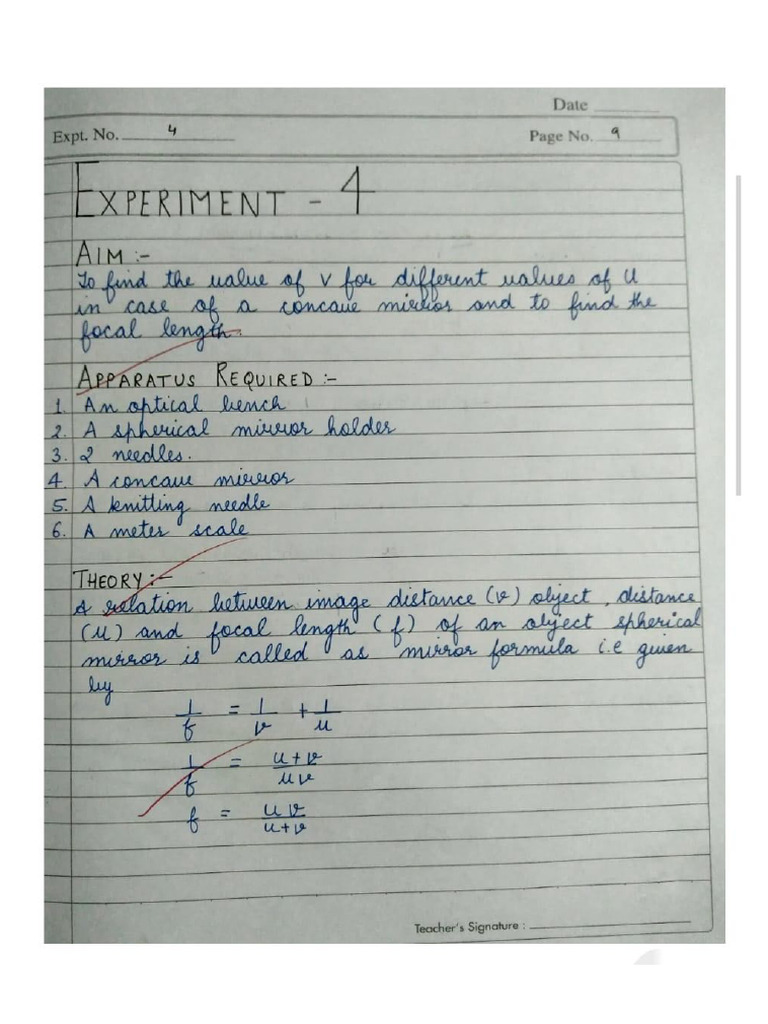 Date
Expt. No. 4
Page No. 9
EXPERIMENT - 4
AIM :-
To find the value of v for different values of u
in case of a concave mirror and to find the
focal length.
APPARATUS REQUIRED :-
1. An optical bench
2. A spherical mirror holder
3. 2 needles.
4. A concave mirror
5. A knitting needle
6. A meter scale
THEORY :-
A relation between image distance (v) object, distance
(u) and focal length (f) of an object spherical
mirror is called as mirror formula i.e given
by
1/f = 1/v + 1/u
1/f = u+v/uv
f = uv/u+v
Teacher's Signature :